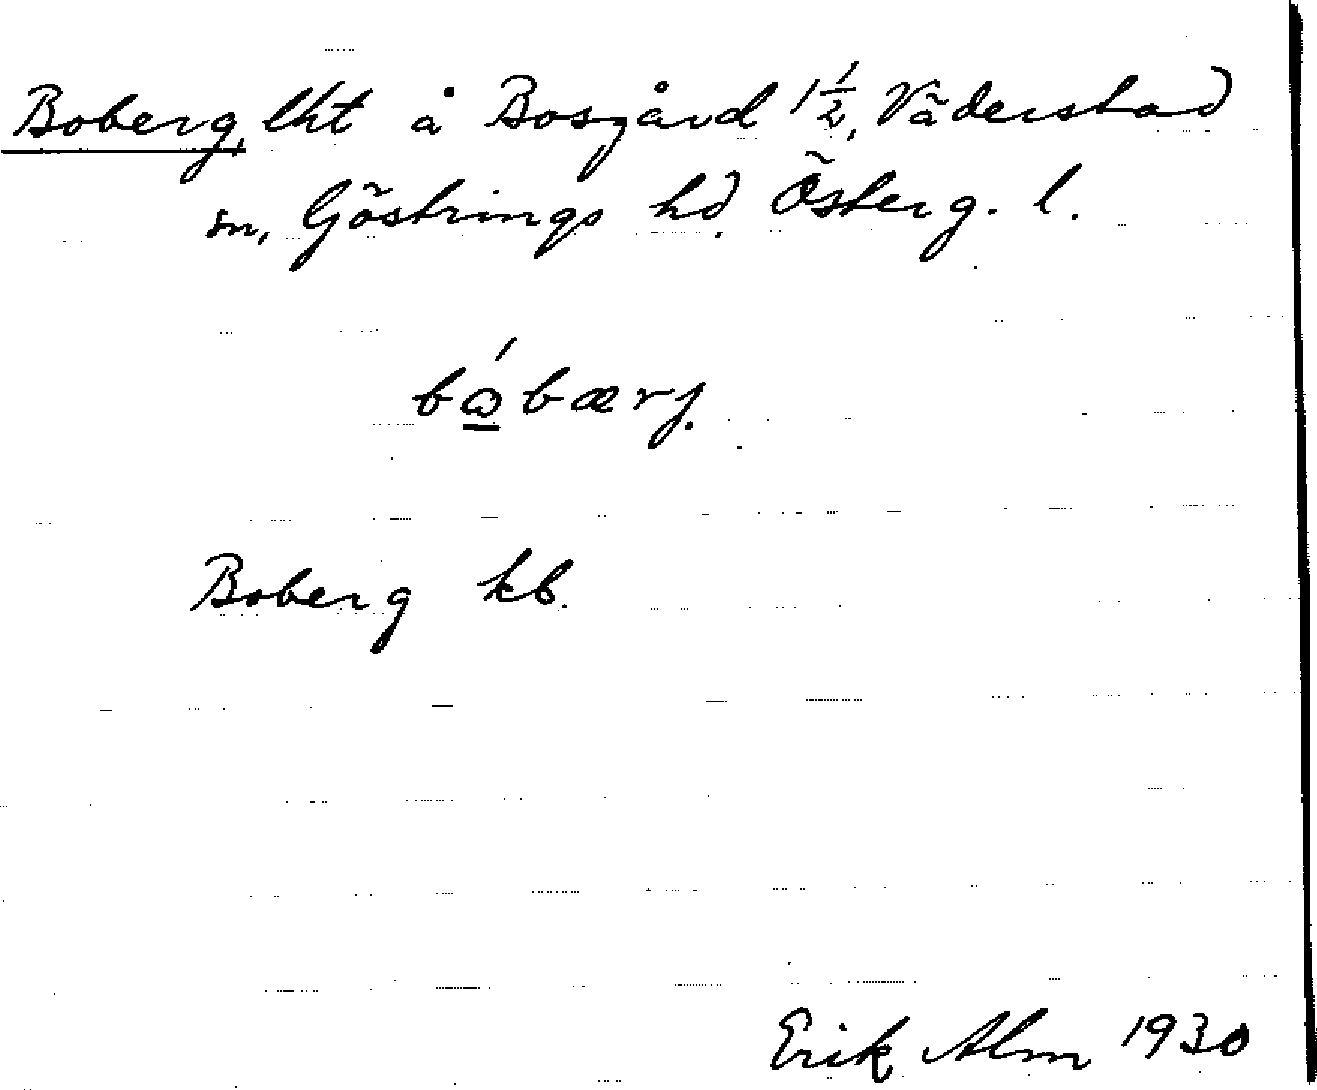 Boberg, lht å Bosgård 1 1/2, Väderstad
sn, Göstrings hd. Österg. l.
bώ̲bærj.
Boberg kb.
Erik Alm 1930